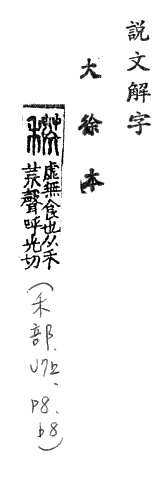 説文解字
大徐本
𥠵 虛無食也从禾
荒聲呼光切
(禾部、U7上、P8、b8)